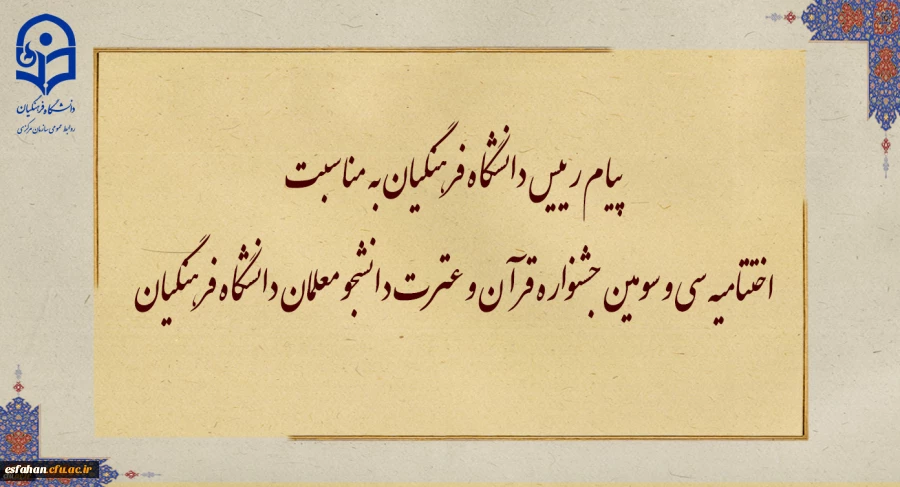 دانشگاه فرهنگیان
روابط عمومی سازمان مرکزی
پیام رییس دانشگاه فرهنگیان به مناسبت
اختتامیه سی و سومین جشنواره قرآن و عترت دانشجو معلمان دانشگاه فرهنگیان
esfahan.cfu.ac.ir